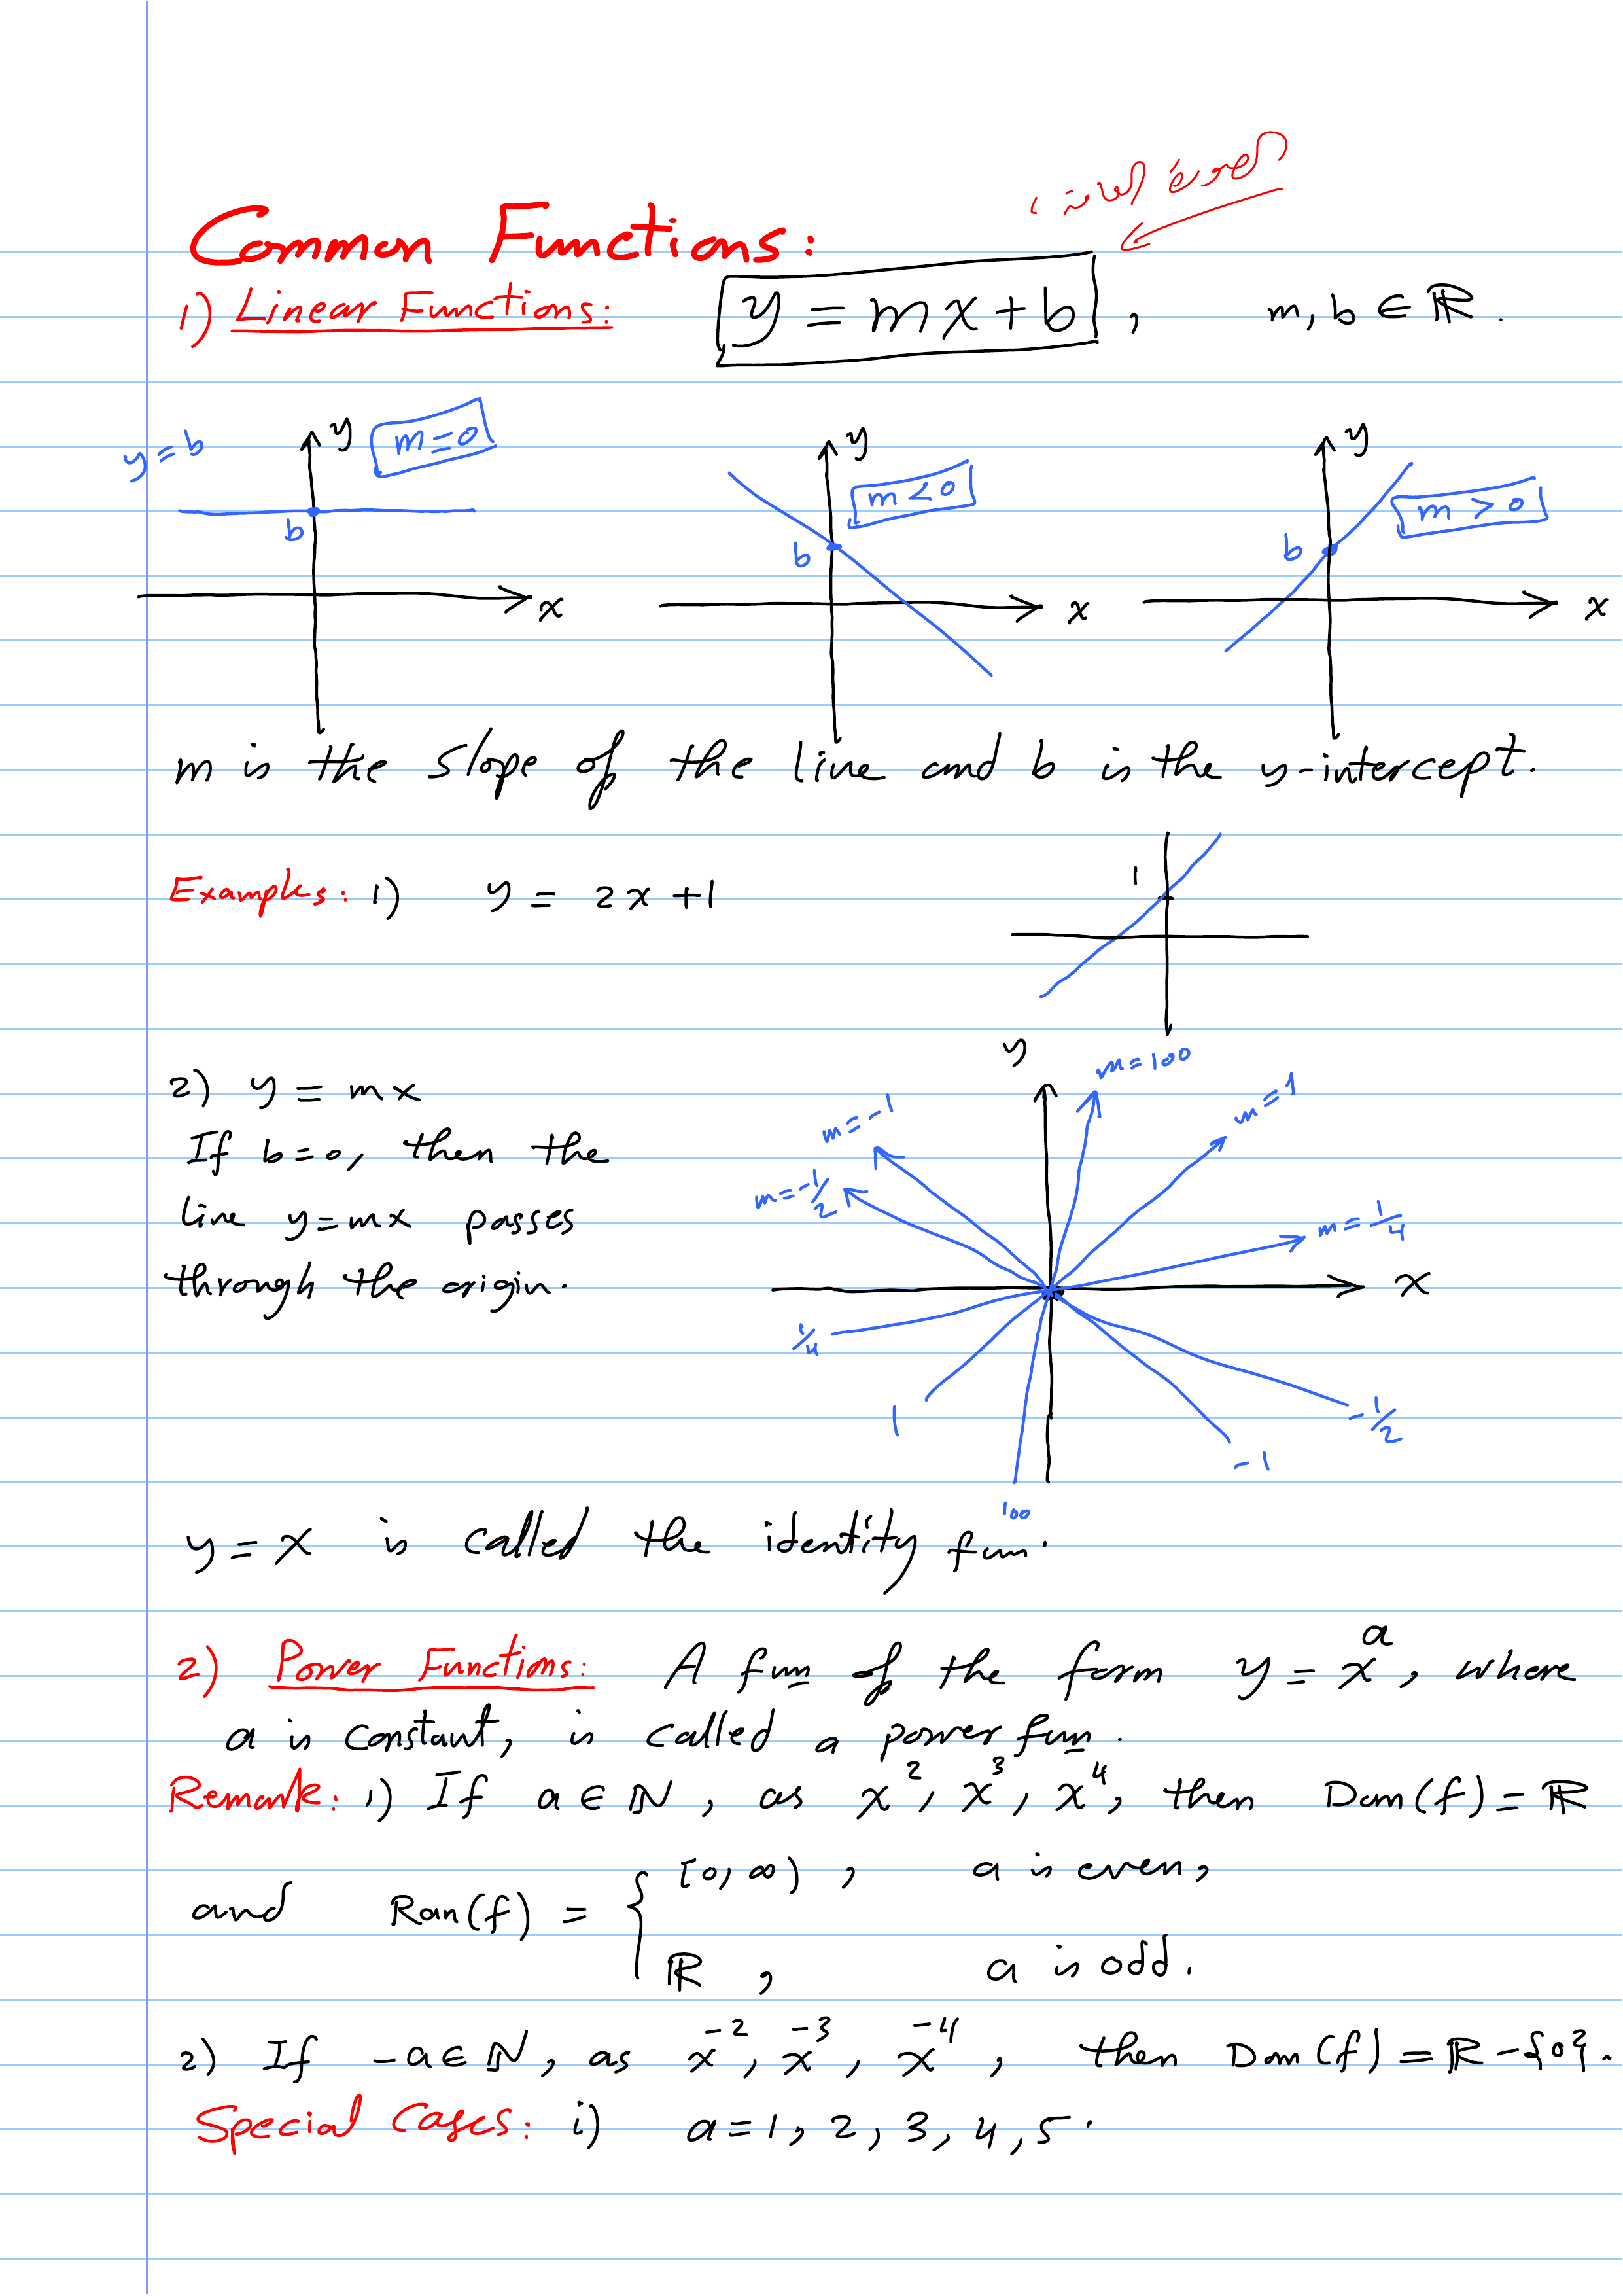 الصورة العامة
Common Functions:
1) Linear Functions: y = mx + b , m, b ∈ ℝ.
y = b
y
m = 0
b
x
y
m < 0
b
x
y
m > 0
b
x
m is the slope of the line and b is the y-intercept.
Examples: 1) y = 2x + 1
1
2) y = mx
If b = 0, then the
line y = mx passes
through the origin.
y
m = 100
m = -1
m = 1
m = -1/2
m = 1/4
x
1/4
1
-1/2
-1
100
y = x is called the identity fun.
2) Power Functions: A fun of the form y = x^a, where
a is constant, is called a power fun.
Remark: 1) If a ∈ ℕ, as x^2, x^3, x^4, then Dom(f) = ℝ
and Ran(f) = { [0, ∞) , a is even,
ℝ , a is odd.
2) If -a ∈ ℕ, as x^-2, x^-3, x^-4, then Dom(f) = ℝ - {0}.
Special Cases: i) a = 1, 2, 3, 4, 5.